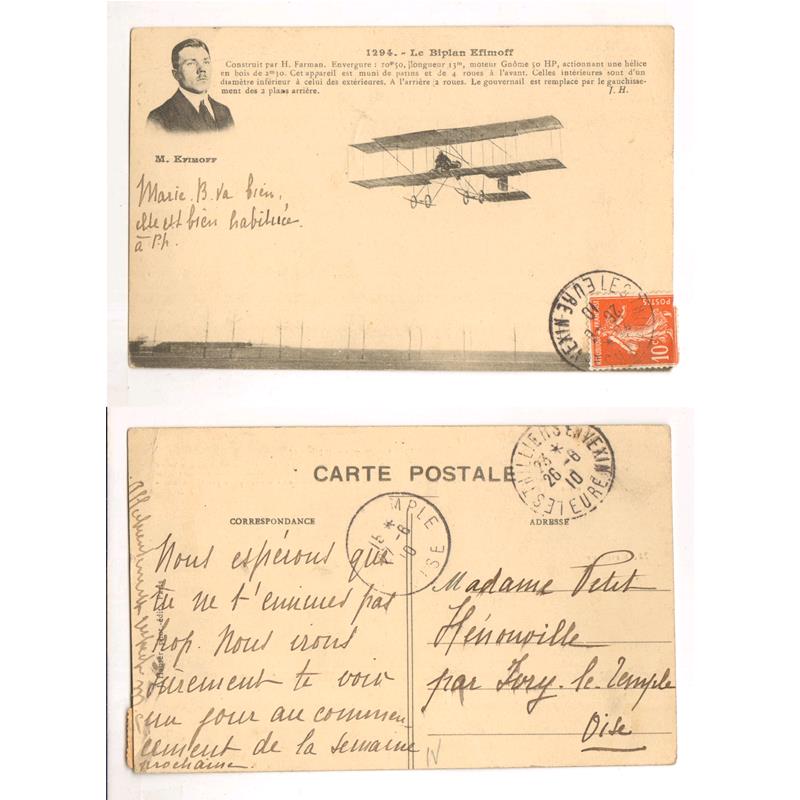 1294. - Le Biplan Efimoff
Construit par H. Farman. Envergure : 10m50, longueur 13m, moteur Gnôme 50 HP, actionnant une hélice
en bois de 2m30. Cet appareil est muni de patins et de 4 roues à l'avant. Celles intérieures sont d'un
diamètre inférieur à celui des extérieures. A l'arrière 2 roues. Le gouvernail est remplacé par le gauchisse-
ment des 2 plans arrière. J. H.
M. EFIMOFF
Marie. B. va bien,
elle est bien habituée
à Ph.
LES
EURE
VEXIN
10
26
POSTES
10c
CARTE POSTALE
LES THILLIERS EN VEXIN
EURE
23 * 26 -8 10
MPLE
ISE
15 * -8 10
CORRESPONDANCE
ADRESSE
Nous espérons que
tu ne t'ennuies pas
trop. Nous irons
sûrement te voir
un jour au commen-
cement de la semaine
prochaine.
Madame Petit
Hénouville
par Ivry-le-Temple
Oise
IV